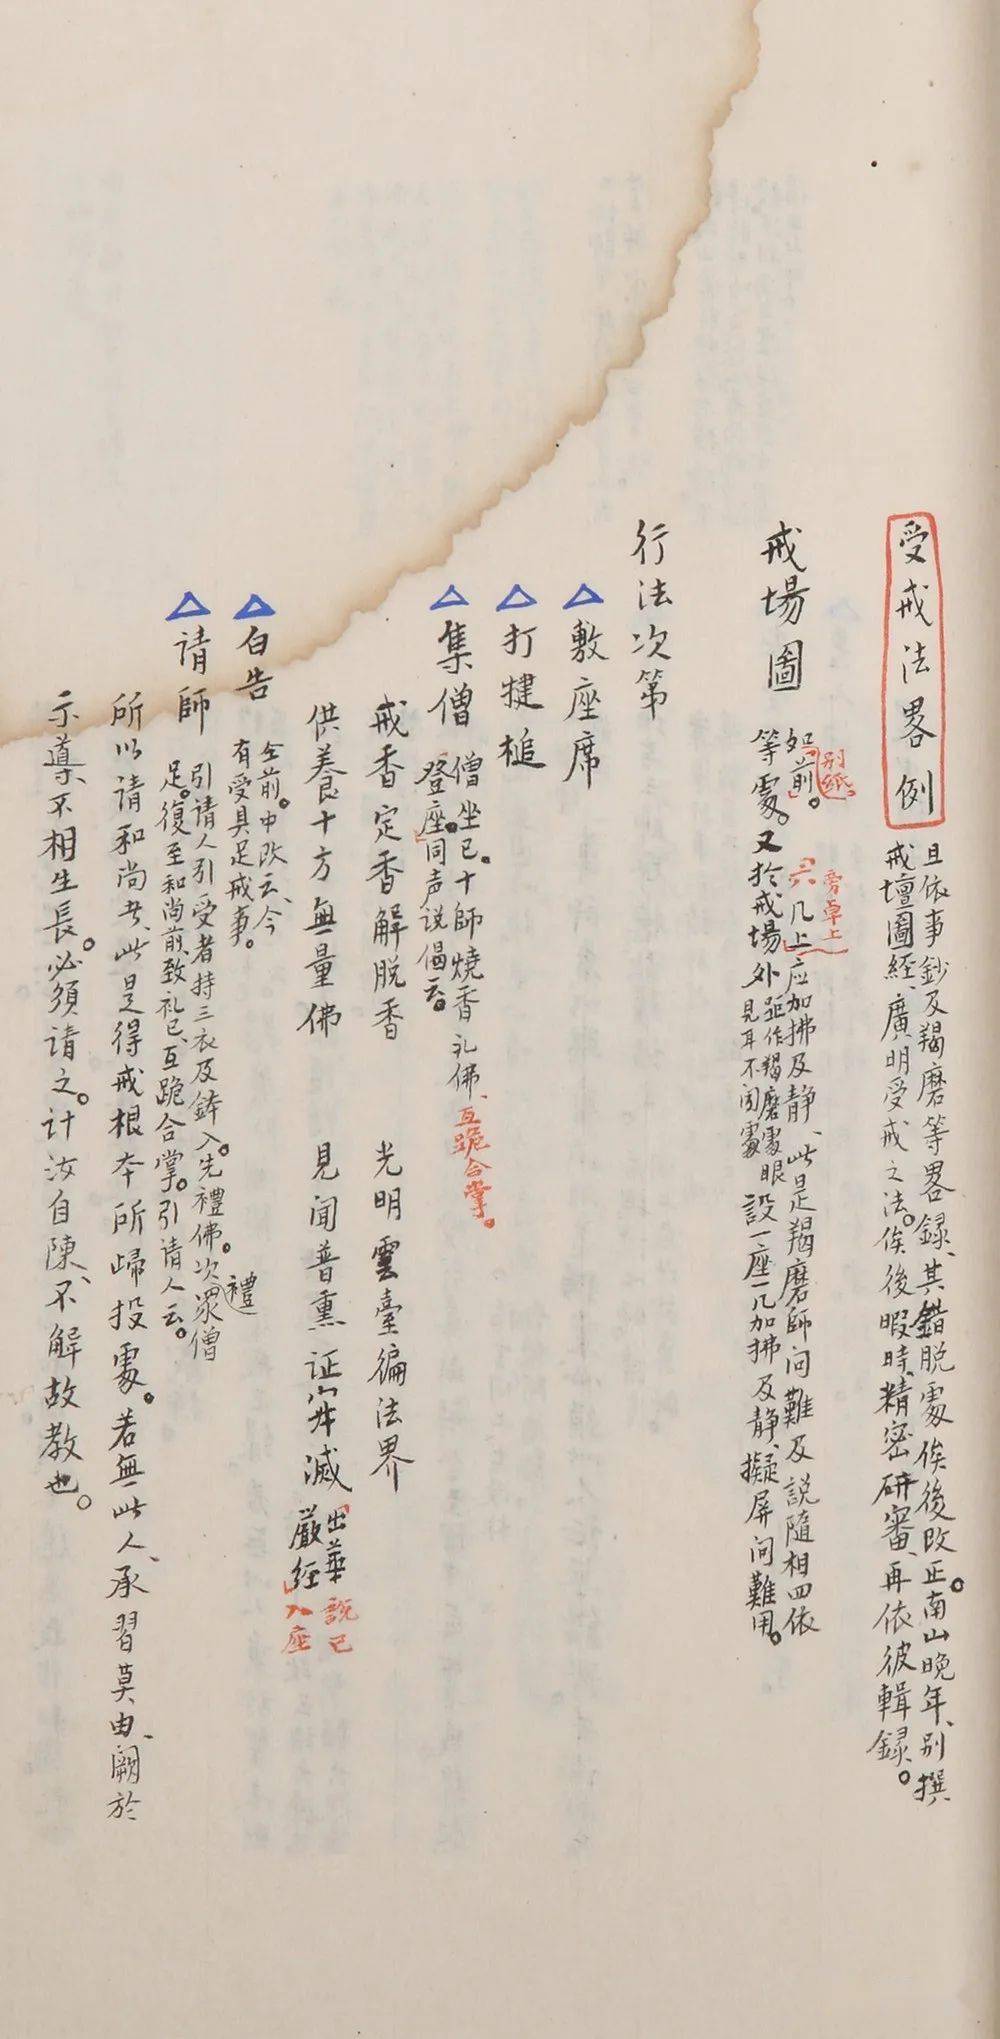 受戒法畧例
且依事鈔及羯磨等畧録、其錯脱處俟後改正。南山晚年、别撰
戒壇圖經、廣明受戒之法。俟後暇時、精密研審、再依彼輯録。
戒場圖
如前。
别紙
等處。又於戒場外
六几上
旁卓上
应加拂及静、此是羯磨師问難及説隨相四依
距作羯磨處眼
見耳不闻處
設一座一几加拂及静、擬屏问難用。
行法次第
△敷座席
△打揵槌
△集僧
僧坐已。十師燒香礼佛、互跪合掌。
登座。同声説偈云。
戒香定香解脱香 光明雲臺徧法界
供養十方無量佛 見闻普熏证寂滅
出華
嚴經
説已
入座
△白告
仝前。中改云、今
有受具足戒事。
△请師
引请人引受者持三衣及鉢入。先禮佛。次禮眾僧
足。復至和尚前、致礼已、互跪合掌。引请人云。
所以请和尚者、此是得戒根本所歸投處。若無此人、承習莫由、闕於
示導、不相生長。必須请之。计汝自陳、不解故教也。